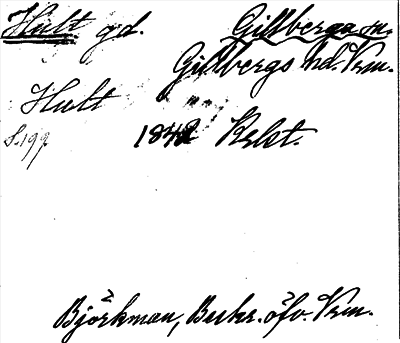 Hult gd. Gillberga sn.
Gillbergs hd. Vrm.
Hult
S. 199 1842 Relst.
Björkman, Beskr. öfv. Vrm.